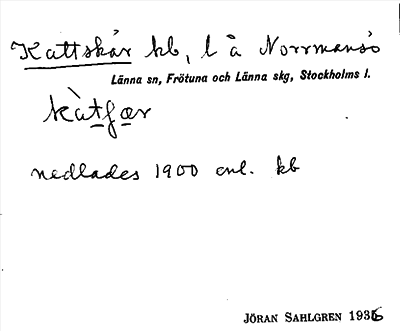 Kattskär kb, l å Norrmansö
Länna sn, Frötuna och Länna skg, Stockholms l.
nedlades 1900 enl. kb
JÖRAN SAHLGREN 1936